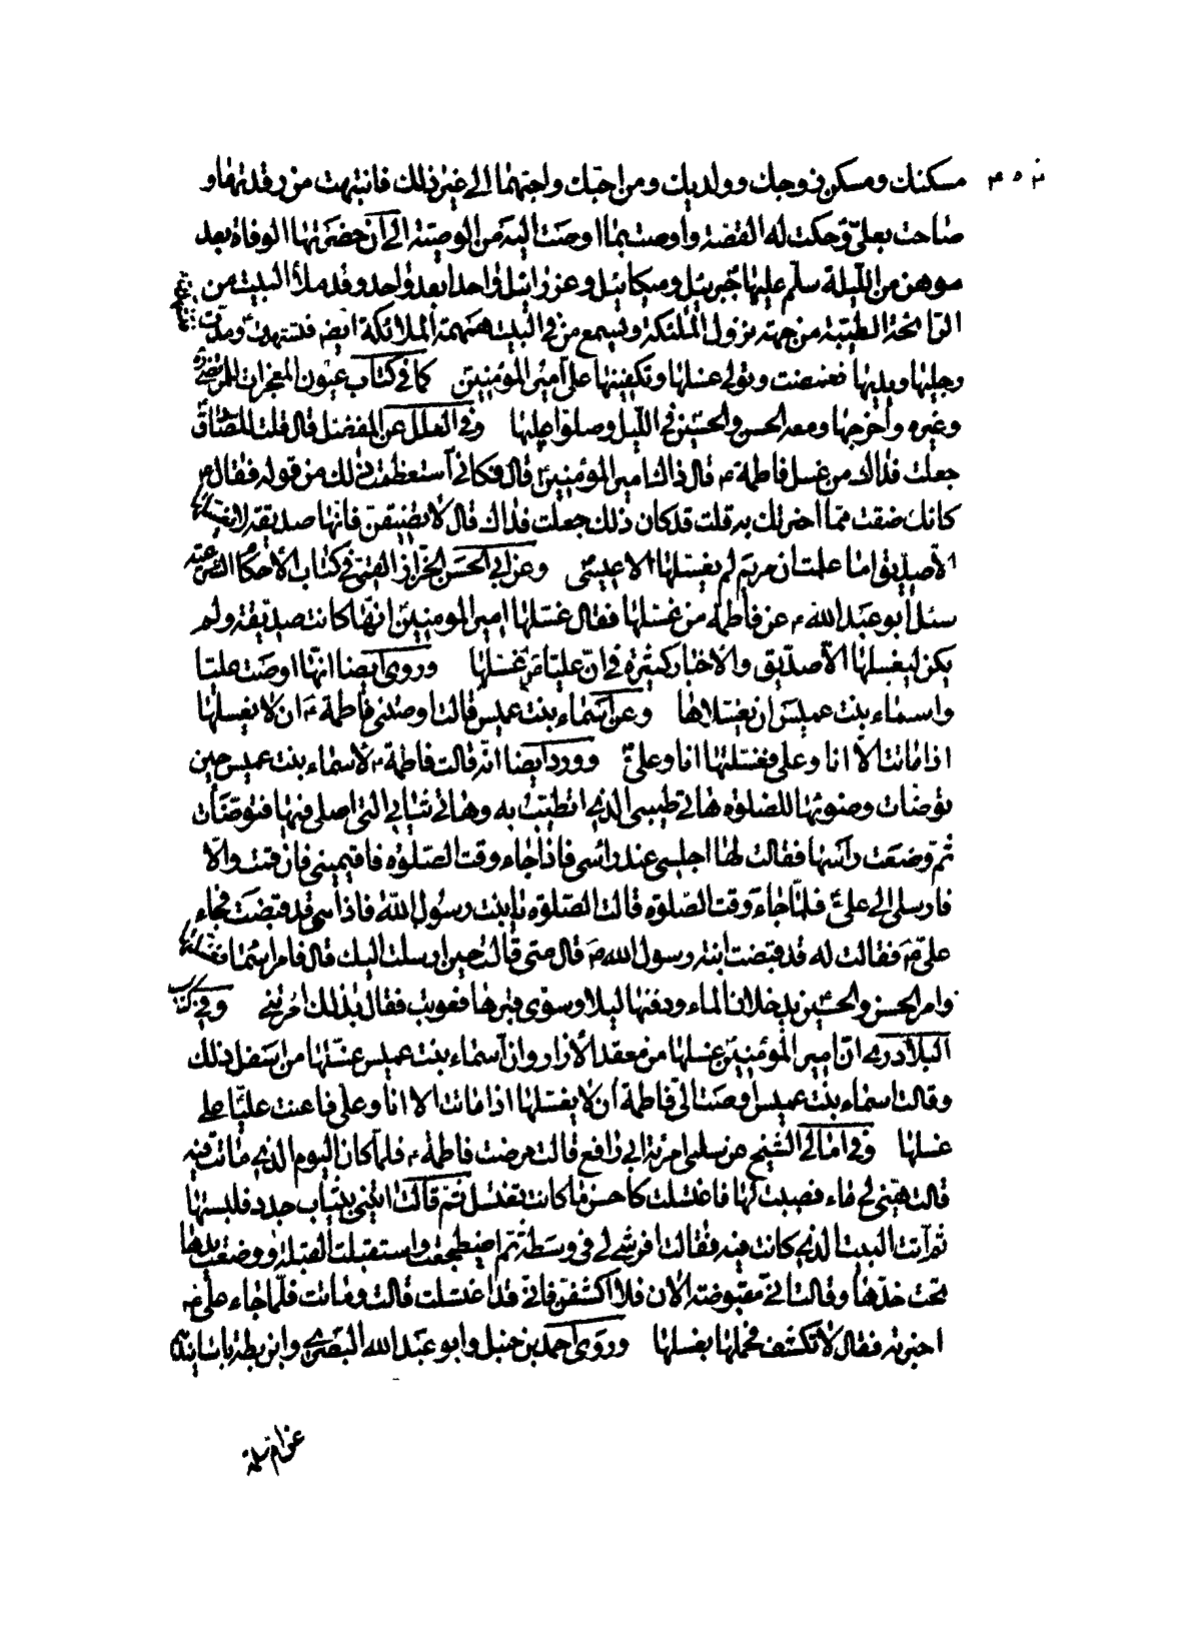 مسكنك ومسكن زوجك وولديك ومن احبك واحبهما الى غير ذلك فانتبهت من رقدتها و
صاحت بعلي وحكت له القصة واوصت بما اوصت اليه من الوصية الى ان حضرتها الوفاة بعد
موهن من الليلة سلم عليها جبرئيل وميكائيل وعزرائيل واحدا بعد واحد وقد ملأ البيت من
الرائحة الطيبة من جهة نزول الملئكة ويسمع من في البيت همهمة الملائكة ايضا فتشهدت ومدت
رجليها ويديها فغمضت وتولى غسلها وتكفينها علي امير المؤمنين كما في كتاب عيون المعجزات للمرتضى
وغيره واخرجها ومعه الحسن والحسين في الليل وصلوا عليها وفي العلل عن المفضل قال قلت للصادق
جعلت فداك من غسل فاطمة ع قال ذاك امير المؤمنين قال فكاني استعظمت ذلك من قوله فقال
كانك ضقت مما اخبرتك به قلت قد كان ذلك جعلت فداك قال لا تضيقن فانها صديقة لا يغسلها
الا صديق اما علمت ان مريم لم يغسلها الا عيسى وعن ابي الحسن الخزاز القمي في كتاب الاحكام الشرعية
سئل ابو عبد الله ع عن فاطمة من غسلها فقال غسلها امير المومنين انها كانت صديقة ولم
يكن ليغسلها الا صديق والاخبار كثيرة في ان عليا ع غسلها وروى ايضا انها اوصت عليا
واسماء بنت عميس ان يغسلاها وعن اسماء بنت عميس قالت اوصتني فاطمة ع ان لا يغسلها
اذا ماتت الا انا وعلي فغسلتها انا وعلي وورد ايضا انه قالت فاطمة ع لاسماء بنت عميس حين
توضأت وضوئها للصلوة هاتي طيبي الذي اتطيب به وهاتي ثيابي التي اصلي فيها فتوضأت
ثم وضعت رأسها فقالت لها اجلسي عند راسي فاذا جاء وقت الصلوة فاقيميني فان قمت والا
فارسلي الى علي فلما جاء وقت الصلوة قالت الصلوة يا بنت رسول الله فاذا هي قد قبضت فجاء
علي ع فقالت له قد قبضت ابنة رسول الله ص قال متى قالت حين ارسلت اليك قال فامر اسماء فغسلتها
وامر الحسن والحسين يدخلان الماء ودفنها ليلا وسوى قبرها فعوتب فقال بذلك امرتني وفي كتاب
البلاذري ان امير المؤمنين غسلها من معقد الازار وان اسماء بنت عميس غسلتها من اسفل ذلك
وقالت اسماء بنت عميس اوصت الي فاطمة ان لا يغسلها اذا ماتت الا انا وعلي فاعنت عليا على
غسلها وفي امالي الشيخ عن سلمى امرئة ابي رافع قالت مرضت فاطمة ع فلما كان اليوم الذي ماتت فيه
قالت هيئي لي ماء فصببت لها فاغتسلت كاحسن ما كانت تغتسل ثم قالت ائتيني بثياب جدد فلبستها
ثم اتت البيت الذي كانت فيه فقالت افرشي لي في وسطه ثم اضطجعت واستقبلت القبلة ووضعت يدها
تحت خدها وقالت اني مقبوضة الان فلا اكشفن فاني قد اغتسلت قالت وماتت فلما جاء علي ع
اخبرته فقال لا تكشف فحملها بغسلها وروى احمد بن حنبل وابو عبد الله البصري وابن بطة باسانيد
عن ام سلمة